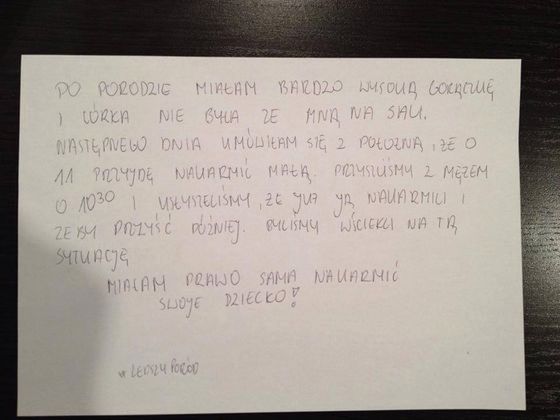 PO PORODZIE MIAŁAM BARDZO WYSOKĄ GORĄCZKĘ
I CÓRKA NIE BYŁA ZE MNĄ NA SALI.
NASTĘPNEGO DNIA UMÓWIŁAM SIĘ Z POŁOŻNĄ, ŻE O
11 PRZYJDĘ NAKARMIĆ MAŁĄ. PRZYSZLIŚMY Z MĘŻEM
O 10³⁰ I USŁYSZELIŚMY, ŻE JUŻ JĄ NAKARMILI I
ŻEBY PRZYJŚĆ PÓŹNIEJ. BYLIŚMY WŚCIEKLI NA TĄ
SYTUACJĘ
MIAŁAM PRAWO SAMA NAKARMIĆ
SWOJE DZIECKO!
#LEPSZYPORÓD